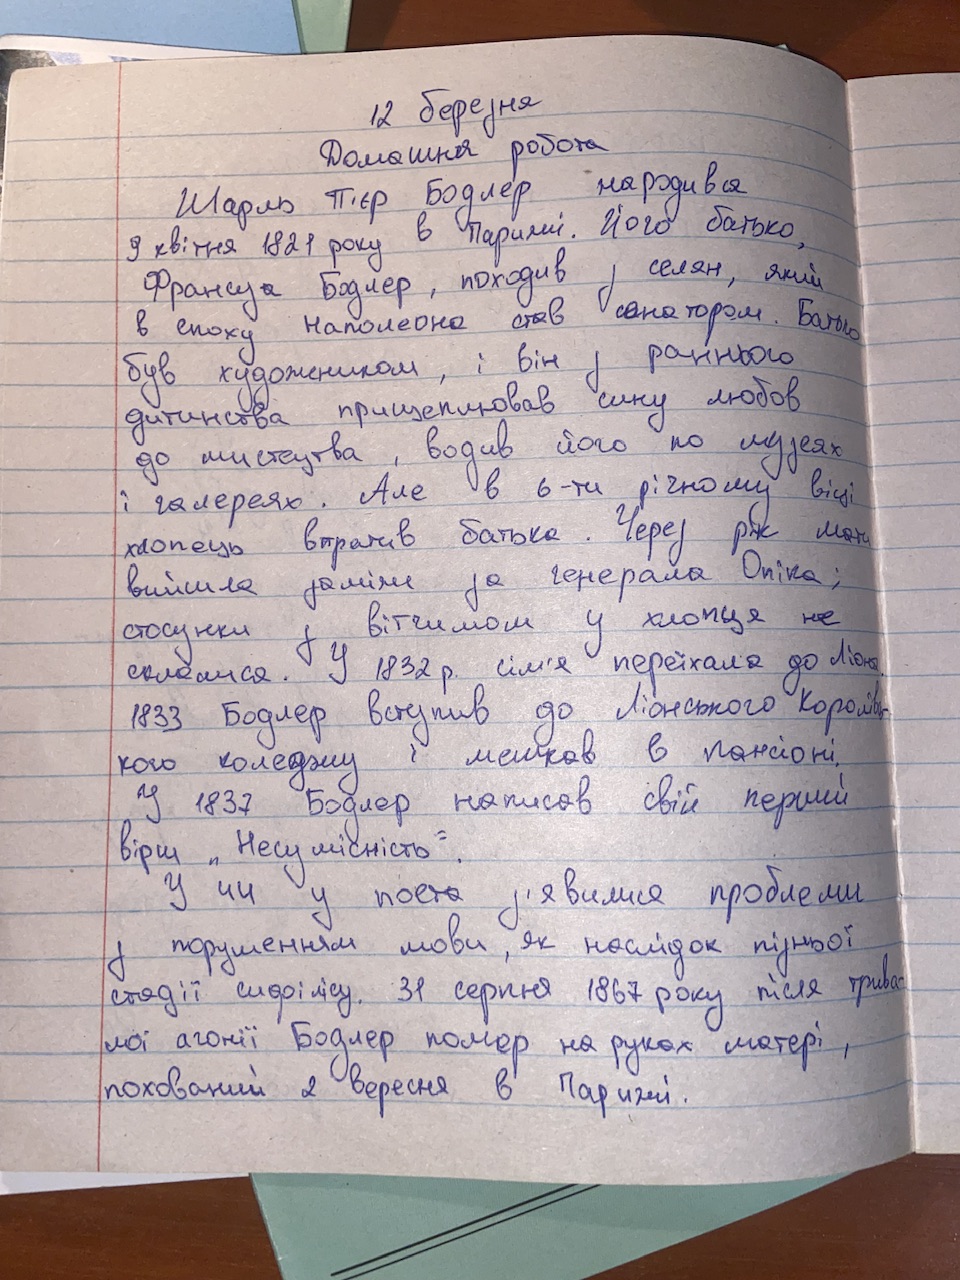 12 березня
Домашня робота
Шарль П'єр Бодлер народився
9 квітня 1821 року в Парижі. Його батько,
Франсуа Бодлер, походив з селян, який
в епоху Наполеона став сенатором. Батько
був художником, і він з раннього
дитинства прищеплював сину любов
до мистецтва, водив його по музеях
і галереях. Але в 6-ти річному віці
хлопець втратив батька. Через рік мати
вийшла заміж за генерала Опіка;
стосунки з вітчимом у хлопця не
склалися. У 1832 р. сім'я переїхала до Ліона.
1833 Бодлер вступив до Ліонського Королівсь-
кого коледжу і мешкав в пансіоні.
У 1837 Бодлер написав свій перший
вірш „Несумісність".
У чи у поета з'явилися проблеми
з порушенням мови, як наслідок пізньої
стадії сифілісу. 31 серпня 1867 року після трива-
лої агонії Бодлер помер на руках матері,
похований 2 вересня в Парижі.